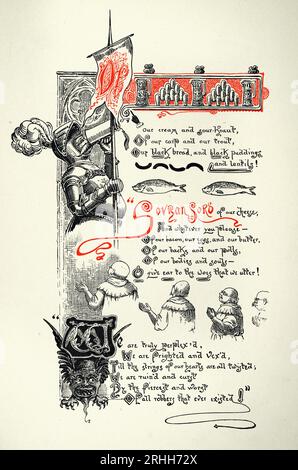 Of
Our cream and sour-kraut,
Of our carp and our trout,
Our black bread, and black puddings
and lentils!
"Sovran Lord of our cheese,
And whatever you please—
Of our bacon, our eggs, and our butter,
Of our backs and our polls,
Of our bodies and souls—
O give ear to the woes that we utter!
We are truly perplex'd,
We are frighted and vex'd,
Till the strings of our hearts are all twisted;
We are ruin'd and curst
By the fiercest and worst
Of all robbers that ever existed!"
Alamy Stock Photo - 2RHH72X